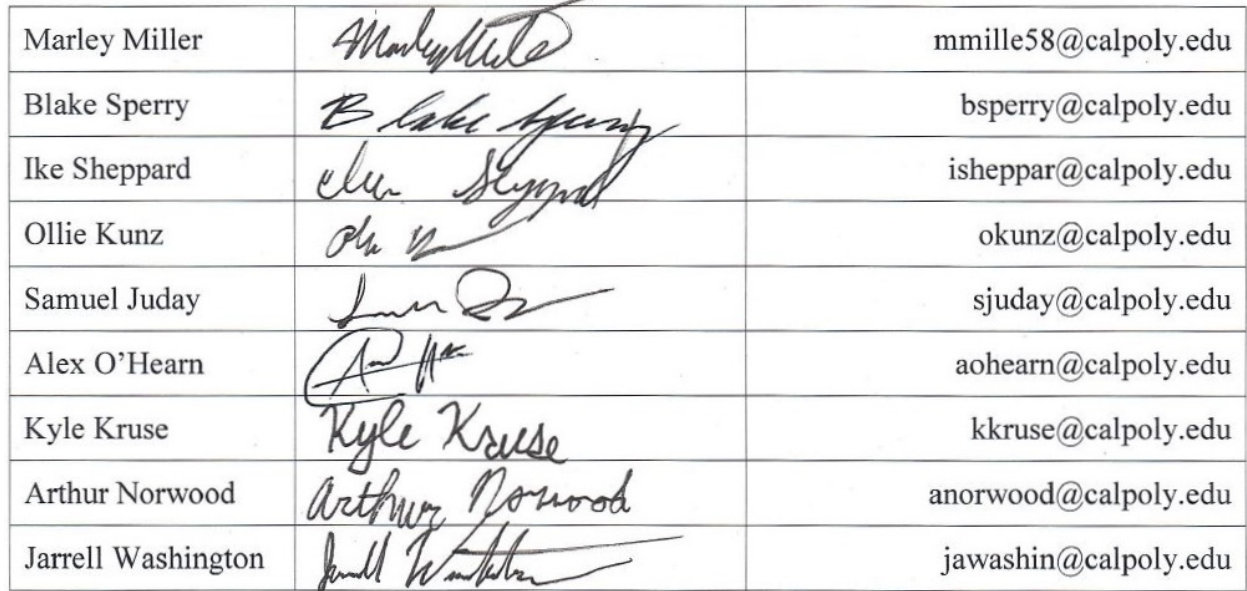 Marley Miller Marley Mille mmille58@calpoly.edu
Blake Sperry Blake Sperry bsperry@calpoly.edu
Ike Sheppard isheppar@calpoly.edu
Ollie Kunz okunz@calpoly.edu
Samuel Juday sjuday@calpoly.edu
Alex O’Hearn aohearn@calpoly.edu
Kyle Kruse Kyle Kruse kkruse@calpoly.edu
Arthur Norwood Arthur Norwood anorwood@calpoly.edu
Jarrell Washington jawashin@calpoly.edu